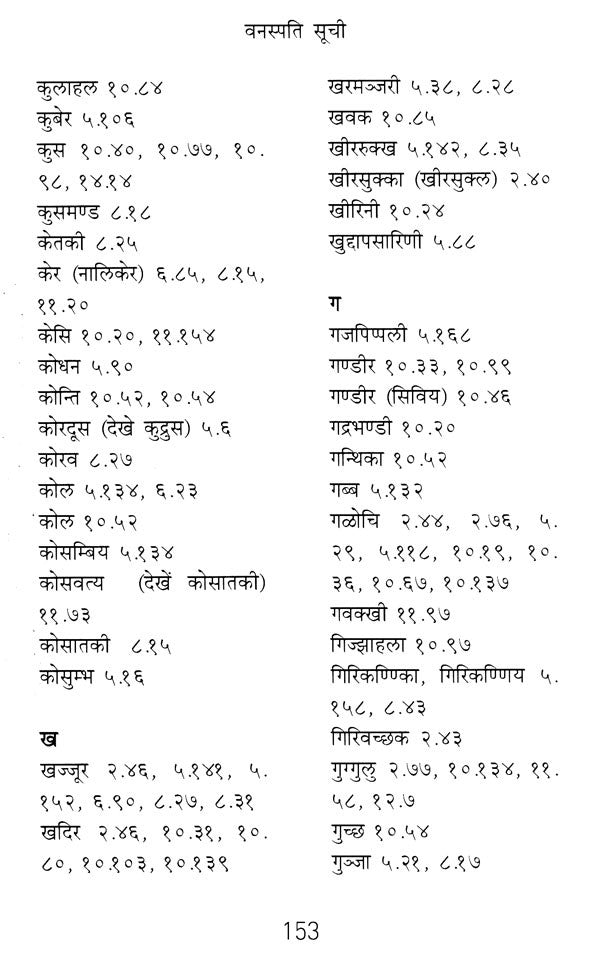 वनस्पति सूची
कुलाहल १०.८४
कुबेर ५.१०६
कुस १०.४०, १०.७७, १०.
९८, १४.१४
कुसमण्ड ८.१८
केतकी ८.२५
केर (नालिकेर) ६.८५, ८.१५,
११.२०
केसि १०.२०, ११.१५४
कोधन ५.९०
कोन्ति १०.५२, १०.५४
कोरदूस (देखे कुद्रुस) ५.६
कोरव ८.२७
कोल ५.१३४, ६.२३
कोल १०.५२
कोसम्बिय ५.१३४
कोसवत्य (देखें कोसातकी)
११.७३
कोसातकी ८.१५
कोसुम्भ ५.१६
ख
खज्जूर २.४६, ५.१४१, ५.
१५२, ६.९०, ८.२७, ८.३१
खदिर २.४६, १०.३१, १०.
८०, १०.१०३, १०.१३९
खरमञ्जरी ५.३८, ८.२८
खवक १०.८५
खीररुक्ख ५.१४२, ८.३५
खीरसुक्का (खीरसुक्ल) २.४०
खीरिनी १०.२४
खुद्दापसारिणी ५.८८
ग
गजपिप्पली ५.१६८
गण्डीर १०.३३, १०.९९
गण्डीर (सिविय) १०.४६
गद्रभण्डी १०.२०
गन्थिका १०.५२
गब्ब ५.१३२
गळोचि २.४४, २.७६, ५.
२९, ५.११८, १०.१९, १०.
३६, १०.६७, १०.१३७
गवक्खी ११.९७
गिज्झाहला १०.९७
गिरिकण्णिका, गिरिकण्णिय ५.
१५८, ८.४३
गिरिवच्छक २.४३
गुग्गुलु २.७७, १०.१३४, ११.
५८, १२.७
गुच्छ १०.५४
गुञ्जा ५.२१, ८.१७
153